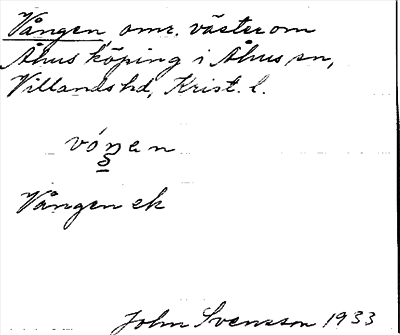 Vången omr. väster om
Åhus köping i Åhus sn,
Villands hd, Krist. l.
Vången ek
John Svensson 1933